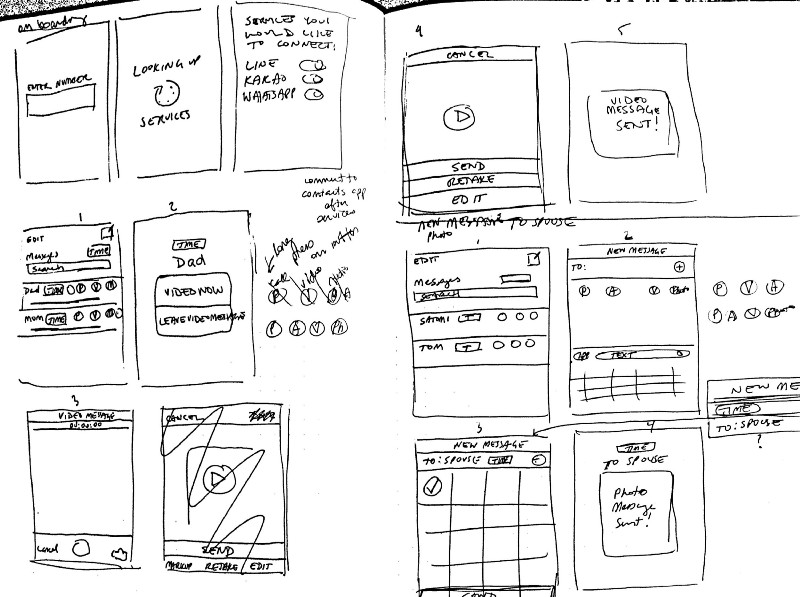 on boarding
ENTER NUMBER
LOOKING UP
SERVICES
SERVICES YOU
WOULD LIKE
TO CONNECT:
LINE
KAKAO
WHATSAPP
connect to
contacts app
after
services
1
EDIT
Messages
TIME
SEARCH
Dad TIME P V
Mom TIME P V
2
TIME
Dad
VIDEO NOW
LEAVE VIDEO MESSAGE
Long
press
on
video
P V A
P A V Ph
3
VIDEO MESSAGE
00:00:00
Cancel
CANCEL
SEND
MARKUP RETAKE EDIT
4
CANCEL
SEND
RETAKE
EDIT
5
VIDEO
MESSAGE
SENT!
NEW MESSAGE TO SPOUSE
Photo
1
EDIT
MESSAGES
SEARCH
SATOMI T
TOM T
2
NEW MESSAGE
TO: +
P A V Photo
APP TEXT
P V A
P A V Photo
NEW ME
TIME
TO: SPOUSE
?
3
NEW MESSAGE
TO: SPOUSE TIME +
SEND
4
TIME
TO SPOUSE
Photo
Message
Sent!